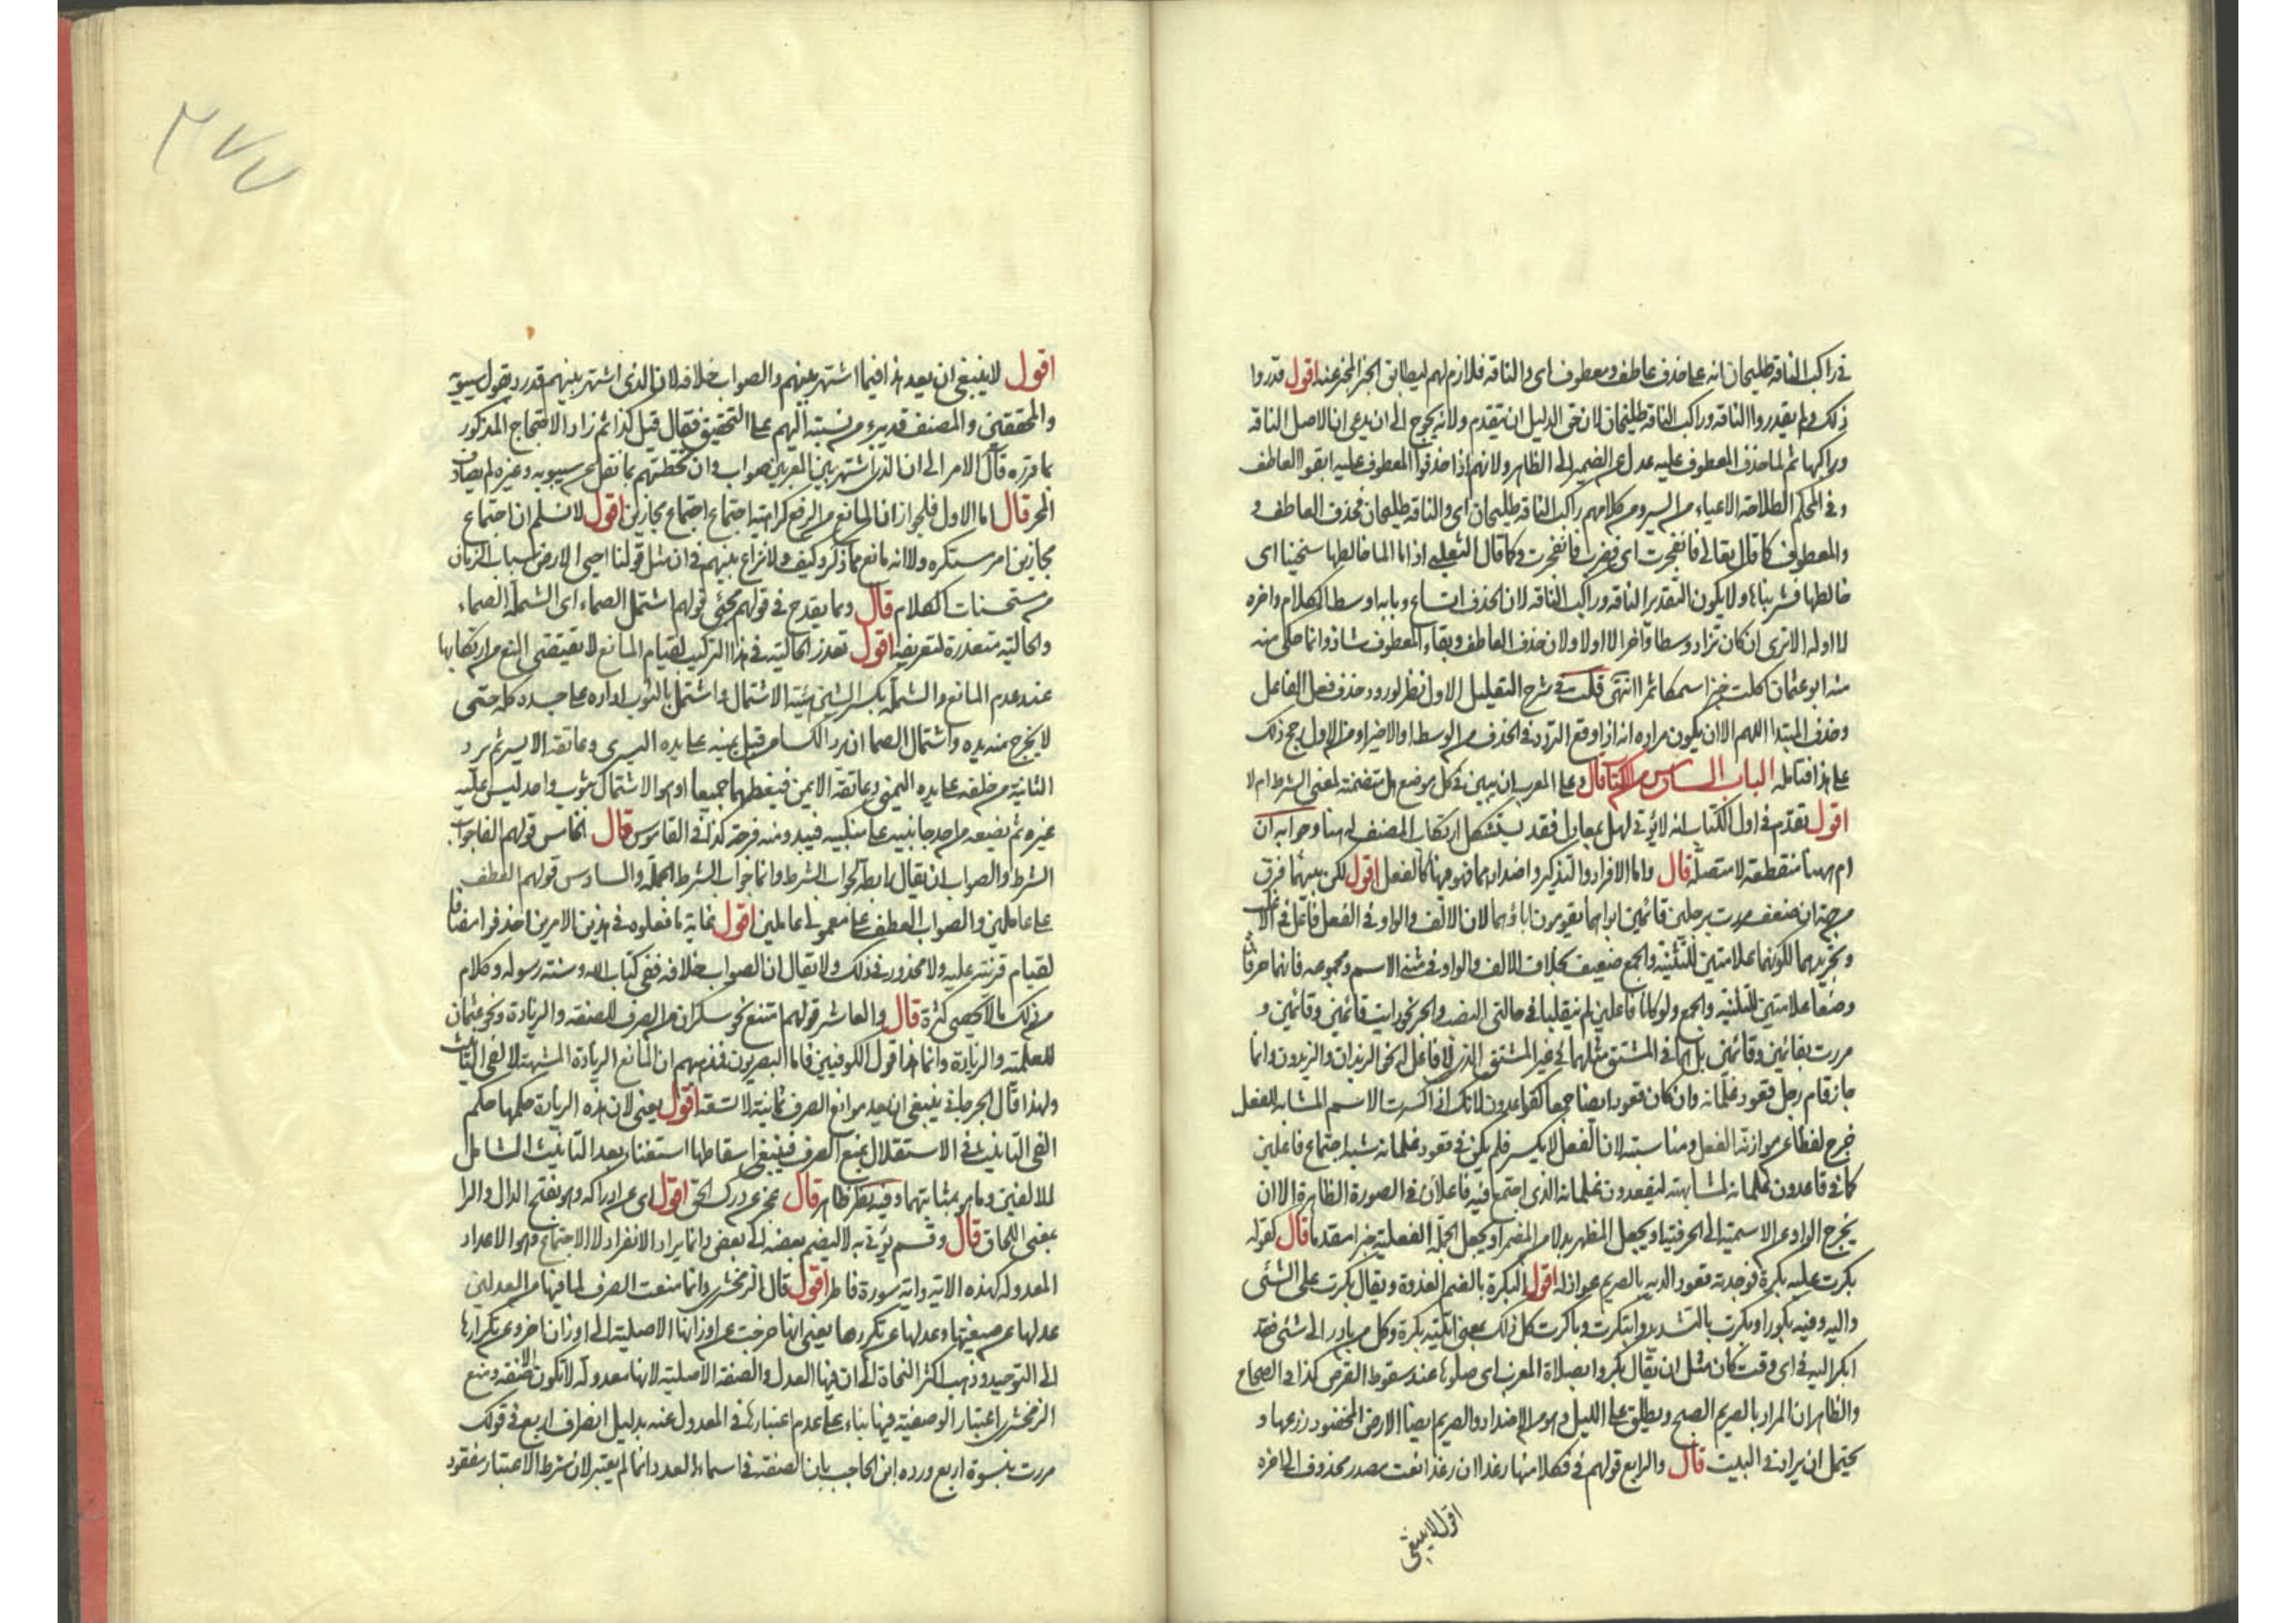 في راكب الناقة طليحان انه على حذف عاطف ومعطوف اى والناقة فلازم لهم ليطابق الخبر المخبر عنه اقول قدروا
ذلك ولم يقدروا الناقة وراكب الناقة طليحان لان حق الدليل ان يتقدم ولانه يحوج الى ان يدعى ان الاصل الناقة
وراكبها ثم لما حذف المعطوف عليه عدل عن الضمير الى الظاهر ولانهم اذا حذفوا المعطوف عليه ابقوا العاطف
وفي المحكم الطلاحة الاعياء من السير ومن كلامهم راكب الناقة طليحان اى والناقة طليحان فحذف العاطف و
والمعطوف كما قال تعالى فانفجرت اى فضرب فانفجرت وكما قال التغلبي اذا ما الماء خالطها سخينا اى
خالطها فشربناها ولا يكون التقدير الناقة وراكب الناقة لان الحذف اتساع وبابه اوسط الكلام واخره
لا اوله الا ترى ان كان تزاد وسطا واخرا لا اولا ولان حذف العاطف وبقاء المعطوف شاذ وانما حكى منه
منه ابو عثمان اكلت خبزا سمكا تمرا انتهى قلت في شرح التعليل الاول نظر لورود حذف فعل الفاعل
وحذف المبتدا اللهم الا ان يكون مراده انه اذا وقع التردد في الحذف من الوسط او الاخير او من الاول رجح ذلك
على هذا فتامله الباب السادس من الكتاب قال وعلى المعرب ان يبين في كل موضع هل متضمنة لمعنى الشرط ام لا
اقول تقدم في اول الكتاب انه لا يؤتى لهل بمعادل فقد يستشكل ارتكاب المصنف له هنا وجوابه ان
ام هنا منقطعة لا متصلة قال واما الافراد والتذكير واضدادهما فهو فيها كالفعل اقول لكن بينهما فرق
من جهة ان ضعف مررت برجلين قائمين ابواهما بقويرون اباؤهما لان الالف والواو في الفعل فاعل في الاغلب
وتجريدهما لكونهما علامتين للتثنية والجمع ضعيف بخلاف الالف والواو في مثنى الاسم ومجموعه فانهما حرفان
وضعا علامتين للتثنية والجمع ولو كانا فاعلين لم ينقلبا في حالتي النصب والجر نحو رايت قائمين وقائمين و
مررت بقائمين وقائمين بل هما في المشتق مثلهما في غير المشتق الذي لا فاعل له نحو الزيدان والزيدون وانما
جاز قام رجل قعود غلمانه وان كان قعود ايضا جمعا كقاعدون لانك اذا كسرت الاسم المشابه للفعل
خرج لفظا عن موازنة الفعل ومناسبته لان الفعل لا يكسر فلم يكن في قعود غلمانه شبه اجتماع فاعلين
كما في قاعدون غلمانه لمشابهته ليقعدون غلمانه الذي اجتمع فيه فاعلان في الصورة الظاهرة الا ان
يخرج الواو عن الاسمية الى الحرفية او يجعل المظهر بدلا من المضمر او يجعل الجملة الفعلية خبرا مقدما قال كقوله
بكرت عليه بكرة فوجدته قعود الديه بالصريم عواذله اقول البكرة بالضم الغدوة ويقال بكرت على الشئ
واليه وفيه بكورا وبكرت بالتشديد وابتكرت وباكرت كل ذلك بمعنى اتيته بكرة وكل من بادر الى شئ فقد
ابكر اليه في اى وقت كان مثل ان يقال بكروا بصلاة المغرب اى صلوها عند سقوط القرص كذا في الصحاح
والظاهر ان المراد بالصريم الصبح ويطلق على الليل وهو من الاضداد والصريم ايضا الارض المحصود زرعها و
يحتمل ان يراد في البيت قال والرابع قولهم في فكلا منها رغدا ان رغدا نعت مصدر محذوف الى اخره
اقول لا ينبغى
٢٧٧
اقول لا ينبغى ان يعد هذا فيما اشتهر بينهم والصواب خلافه لان الذى اشتهر بينهم قدر ورد بقول سيبويه
والمحققين والمصنف قد يبرء من نسبته اليهم على التحقيق فقال قيل كذا ثم زاد الاحتجاج المذكور
بما قرره قال الامر الى ان الذى اشتهر بين المعربين صواب وان تخطئتهم بما نقل عن سيبويه وغيره لم يصادف
المحز قال اما الاول فلجواز ان المانع من الرفع كراهية اجتماع مجازين اقول لا نسلم ان اجتماع
مجازين امر مستكره ولا انه مانع مما ذكر وكيف ولا نزاع بينهم في ان مثل قولنا احيى الارض شباب الزمان
من مستحسنات الكلام قال ومما يقدح في قولهم مجئ قولهم اشتمل الصماء اى الشملة الصماء
والحالية متعذرة لتعريفه اقول تعذر الحالية في هذا التركيب لقيام المانع لا يقتضى المنع من ارتكابها
عند عدم المانع والشملة بكسر الشين هيئة الاشتمال واشتمل بالثوب اداره على جسده كله حتى
لا يخرج منه يده واشتمال الصما ان يرد الكساء من قبل يمينه على يده اليسرى وعاتقه الايسر ثم يرد
الثانية من خلفه على يده اليمنى وعاتقه الايمن فيغطيهما جميعا او هو الاشتمال بثوب واحد ليس عليه
غيره ثم يضعه من احد جانبيه على منكبيه فيبدو منه فرجه كذا في القاموس قال الخامس قولهم الفاجواب
الشرط والصواب ان يقال رابطة لجواب الشرط وانما جواب الشرط الجملة والسادس قولهم العطف
على عاملين والصواب العطف على معمولى عاملين اقول غاية ما فعلوه في هذين الامرين حذفوا مضافا
لقيام قرينة عليه ولا محذور في ذلك ولا يقال ان الصواب خلافه ففى كتاب الله وسنة رسوله وكلام
من ذلك ما لا يحصى كثرة قال والعاشر قولهم امتنع نحو سكران من الصرف للصفة والزيادة ونحو عثمان
للعلمية والزيادة وانما هذا قول الكوفيين فاما البصريون فمذهبهم ان المانع الزيادة المشبهة لالفى التانيث
ولهذا قال الجرجانى ينبغى ان يعد موانع الصرف ثمانية لا تسعة اقول يعنى لان هذه الزيادة حكمها حكم
الفى التانيث في الاستقلال بمنع الصرف فينبغى اسقاطها استغناء بعد التانيث الشامل
للالفين وما هو بمثابتهما وفيه نظر ظاهر قال عجز عن درك الحق اقول اى عن ادراكه وهو بفتح الدال والرا
بمعنى اللحاق قال وقسم يؤتى به لا ليضم بعضه الى بعض وانما يراد الانفراد لا الاجتماع وهو الاعداد
المعدوله كهذه الاية واية سورة فاطر اقول قال الزمخشرى وانما منعت الصرف لما فيها من العدلين
عدلها عن صيغتها وعدلها عن تكررها يعنى انها خرجت عن اوزانها الاصلية الى اوزان اخر وعن تكرارها
الى التوحيد وذهب اكثر النحاة الى ان فيها العدل والصفة الاصلية لانها معدولة لا تكون الا صفة ومنع
الزمخشرى اعتبار الوصفية فيها بناء على عدم اعتبارها في المعدول عنه بدليل انصراف اربع في قولك
مررت بنسوة اربع ورده ابن الحاجب بان الصفة في اسماء العدد انما لم يعتبر لان شرط الاعتبار مفقود